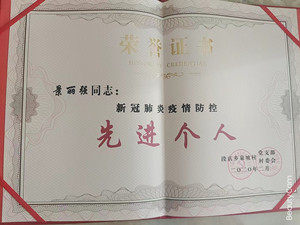 荣誉证书
景丽强同志：
新冠肺炎疫情防控
先进个人
党支部
村委会
二〇二〇年二月